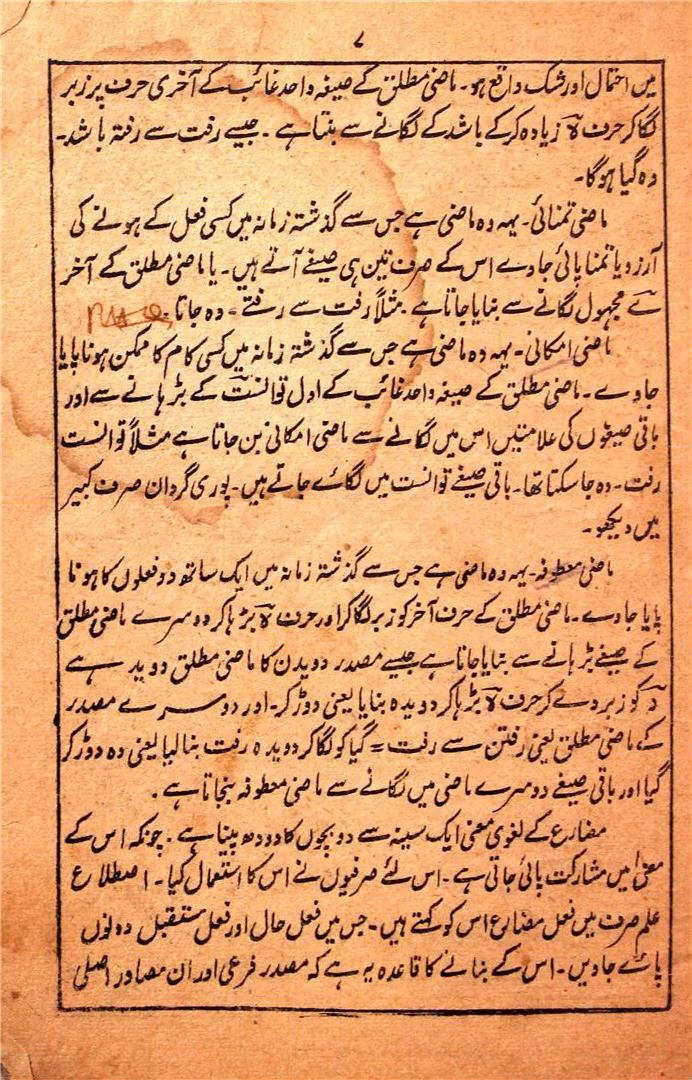 ۷
میں احتمال اور شک واقع ہو۔ ماضی مطلق کے صیغہ واحد غائب کے آخری حرف پر زبر
لگا کر حرف ہ زیادہ کر کے باشد کے لگانے سے بنتا ہے۔ جیسے رفت سے رفتہ باشد۔
وہ گیا ہوگا۔
ماضی تمنائی۔ یہہ وہ ماضی ہے جس سے گذشتہ زمانہ میں کسی فعل کے ہونے کی
آرزو یا تمنا پائی جاوے اس کے صرف تین ہی صیغے آتے ہیں۔ یا ماضی مطلق کے آخر
ے مجہول لگانے سے بنایا جاتا ہے۔ مثلاً رفت سے رفتے = وہ جاتا۔
ماضی امکانی۔ یہہ وہ ماضی ہے جس سے گذشتہ زمانہ میں کسی کام کا ممکن ہونا پایا
جاوے۔ ماضی مطلق کے صیغہ واحد غائب کے اول توانست کے بڑہانے سے اور
باقی صیغوں کی علامتیں اس میں لگانے سے ماضی امکانی بن جاتا ہے مثلاً توانست
رفت۔ وہ جا سکتا تھا۔ باقی صیغے توانست میں لگائے جاتے ہیں۔ پوری گردان صرف کبیر
میں دیکھو۔
ماضی معطوفہ۔ یہہ وہ ماضی ہے جس سے گذشتہ زمانہ میں ایک ساتھ دو فعلوں کا ہونا
پایا جاوے۔ ماضی مطلق کے حرف آخر کو زبر لگا کر اور حرف ہ بڑہا کر دوسرے ماضی مطلق
کے صیغے بڑہانے سے بنایا جاتا ہے جیسے مصدر دویدن کا ماضی مطلق دوید ہے
د کو زبر دے کر حرف ہ بڑہا کر دویدہ بنایا یعنی دوڑ کر۔ اور دوسرے مصدر
کے ماضی مطلق یعنی رفتن سے رفت = گیا کو لگا کر دویدہ رفت بنا لیا یعنی وہ دوڑ کر
گیا اور باقی صیغے دوسرے ماضی میں لگانے سے ماضی معطوفہ بنجاتا ہے۔
مضارع کے لغوی معنی ایک سینہ سے دو بچوں کا دودھ پینا ہے۔ چونکہ اس کے
معنی میں مشارکت پائی جاتی ہے۔ اس لئے صرفیوں نے اس کا استعمال کیا۔ اصطلاع
علم صرف میں فعل مضارع اس کو کہتے ہیں۔ جس میں فعل حال اور فعل مستقبل دونوں
پائے جاویں۔ اس کے بنانے کا قاعدہ یہ ہے کہ مصدر فرعی اور ان مصادر اصلی